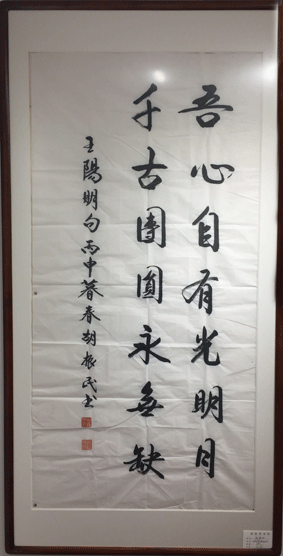 吾心自有光明月
千古團圓永無缺
王陽明句丙申暮春胡振民書